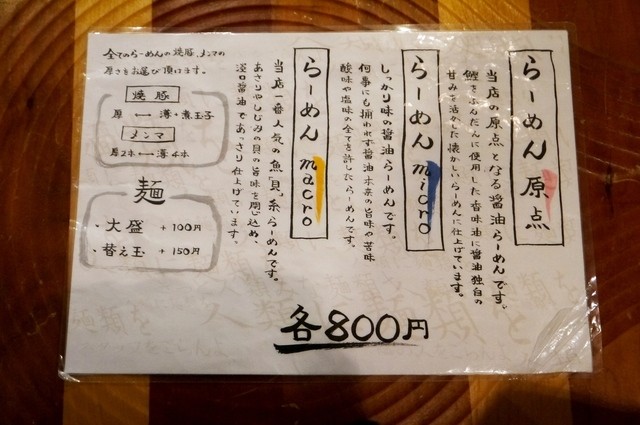 らーめん 原点
当店の原点となる醤油らーめんです。
鰹をふんだんに使用した香味油に醤油独自の
甘みを活かした懐かしいらーめんに仕上げています。
らーめん micro
しっかり味の醤油らーめんです。
何事にも拘われず醤油本来の旨味や苦味
酸味や塩味の全てを許したらーめんです。
らーめん macro
当店一番人気の魚貝系らーめんです。
あさりやしじみの貝の旨味を閉じ込め、
淡口醤油であっさり仕上げています。
各800円
全てのらーめんの焼豚、メンマの
厚さをお選び頂けます。
焼豚
厚 ⟷ 薄+煮玉子
メンマ
厚2本 ⟷ 薄4本
麺
・大盛 +100円
・替え玉 +150円